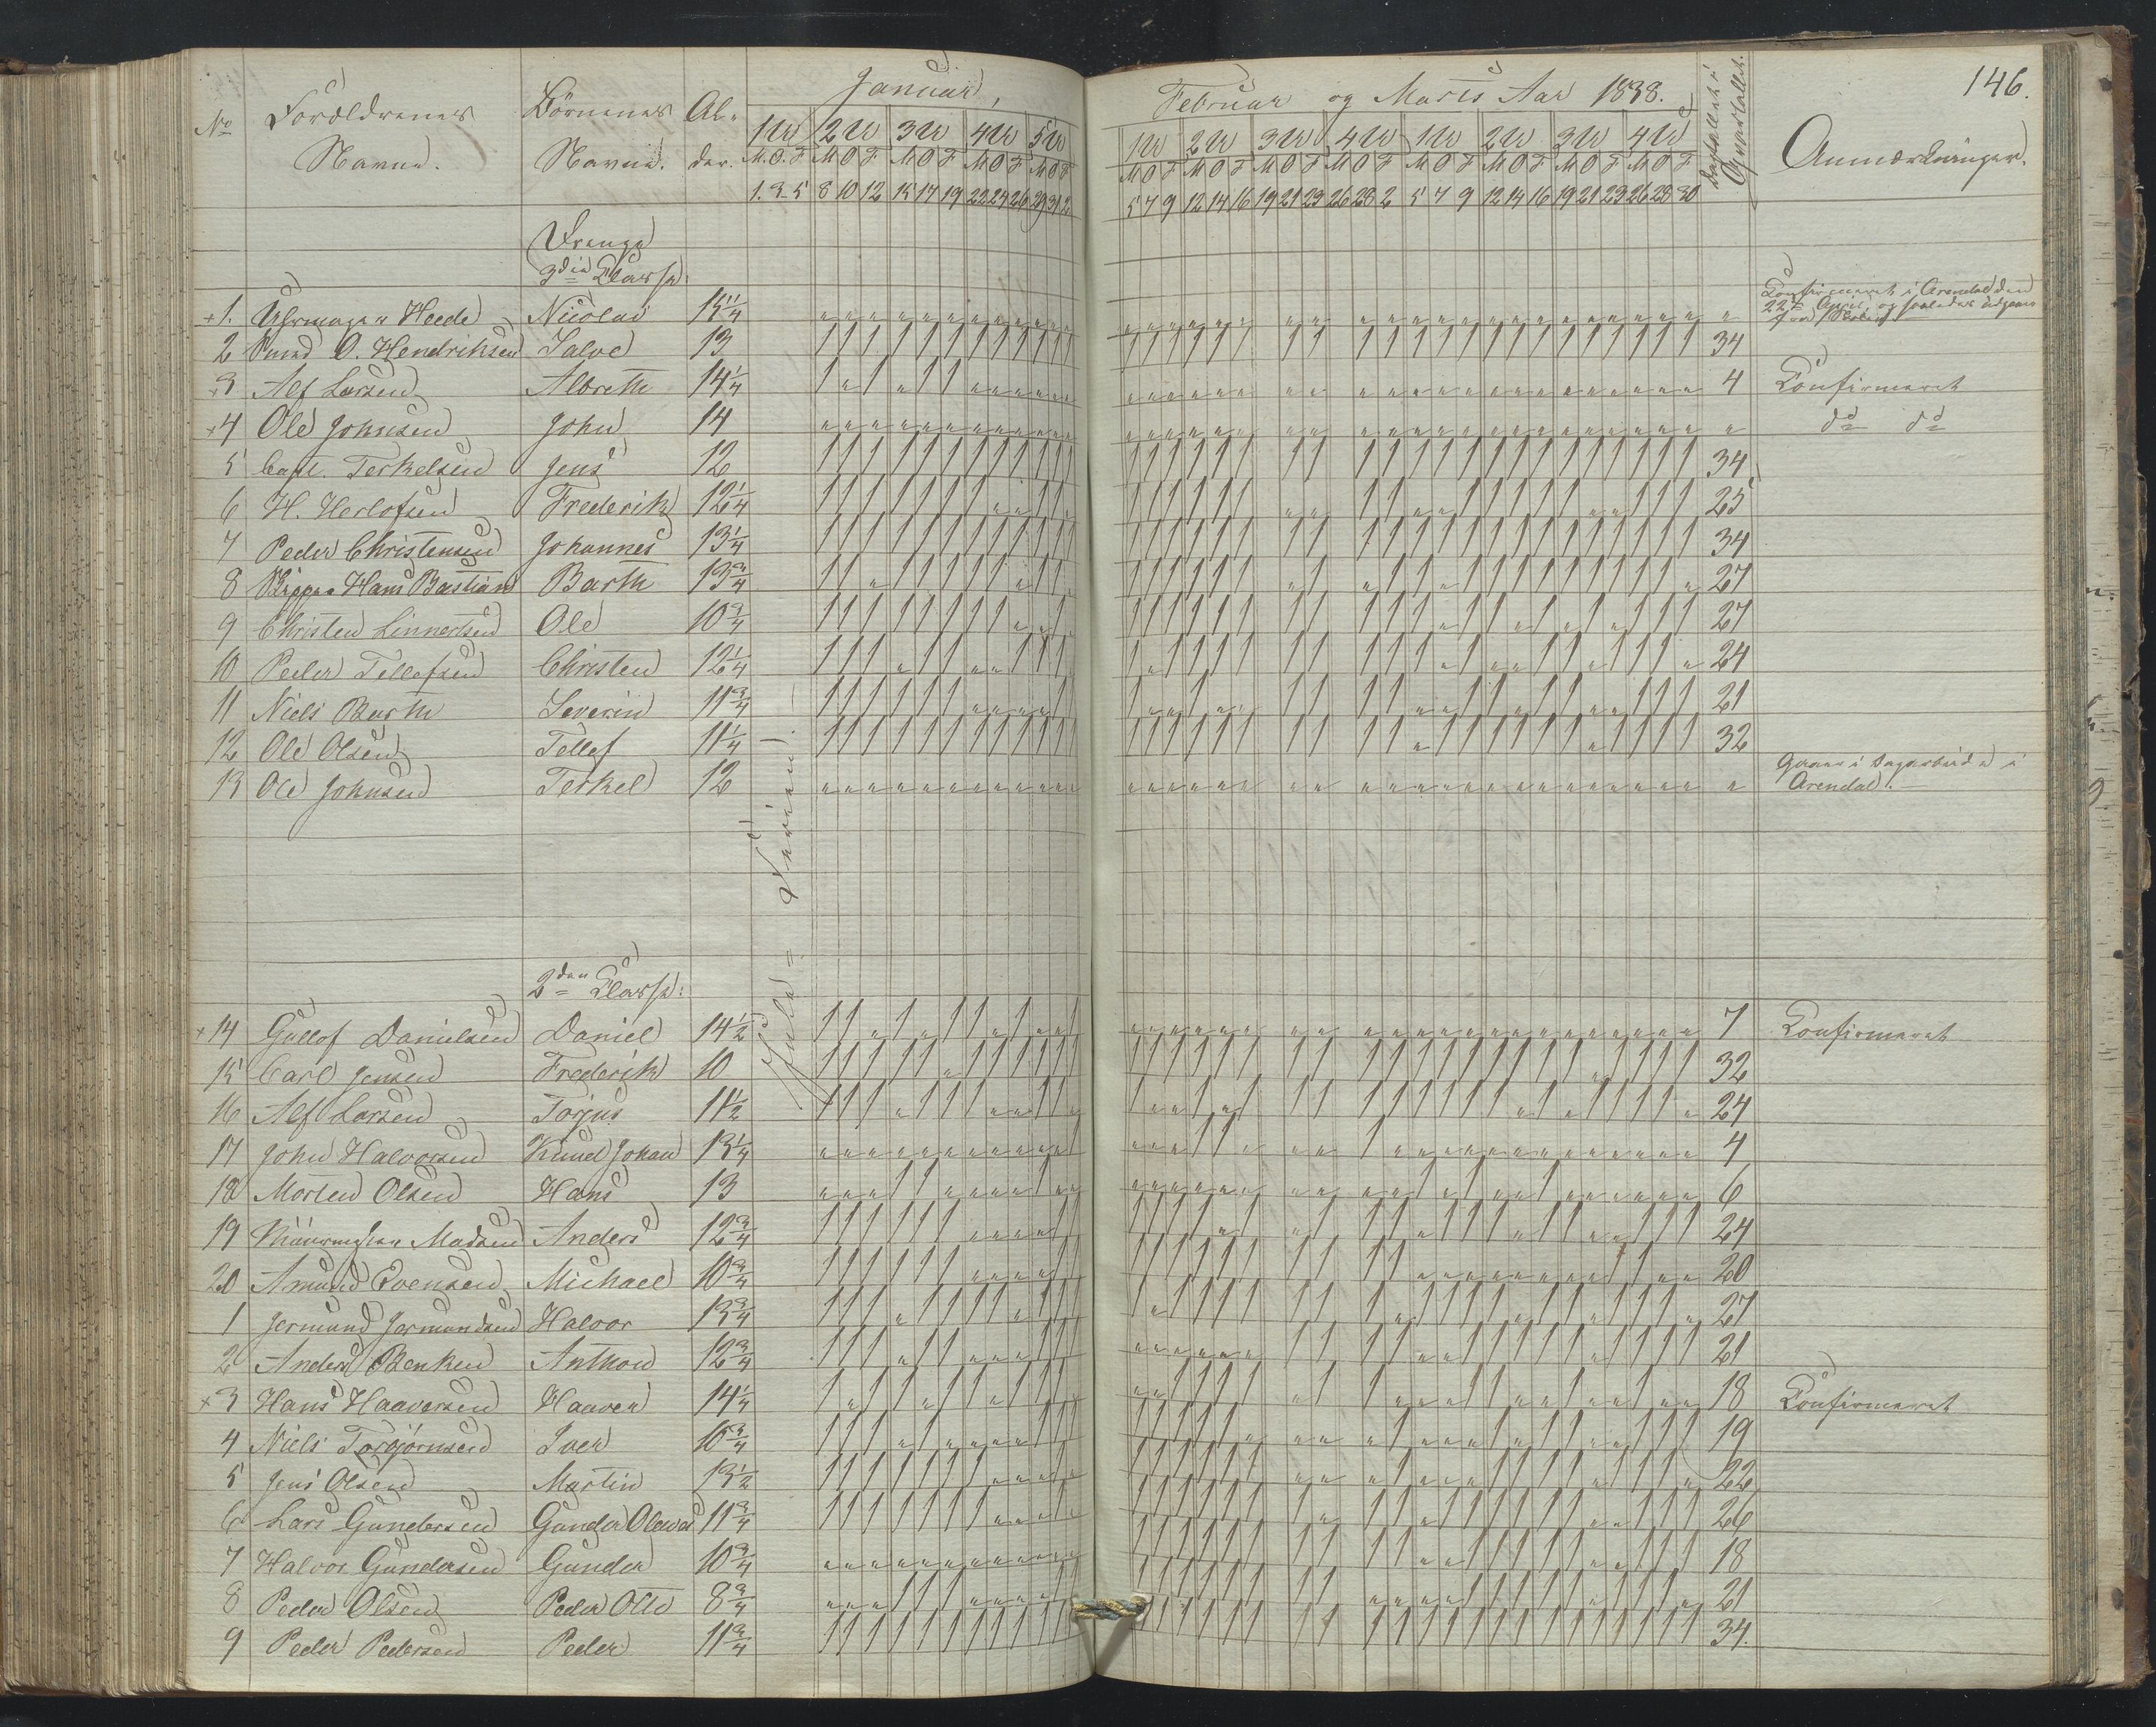 Januar,
Februar og Marts Aar 1838.
146.
No Forældrenes Navne. Børnenes Navne. Alder. Anmærkninger.
1 U 2 U 3 U 4 U 5 U
1 U 2 U 3 U 4 U 1 U 2 U 3 U 4 U
M. O. F M O F M O F M O F M O F
M O F M O F M O F M O F M O F M O F M O F M O F
1. 3. 5 8 10 12 15 17 19 22 24 26 29 31 2
5 7 9 12 14 16 19 21 23 26 28 2 5 7 9 12 14 16 19 21 23 26 28 30
Drenge
3die Classe:
+1. Uhrmager Heede Nicolai 15 1/4 " Confirmeret i Arendal den
22de April, og saaledes udgaaet
fra Skolen
2 Smed O. Hendriksen Salve 13 34
+3 Alf Larsen Albreth 14 1/4 4 Confirmeret
+4 Ole Johnsen John 14 " do do
5 Capt. Terkelsen Jens 12 34
6 H. Herlofsen Frederik 12 1/4 25
7 Peder Christensen Johannes 13 1/4 34
8 Skipper Hans Bastian Barth 13 3/4 27
9 Christen Linnertsen Ole 10 3/4 27
10 Peder Tellefsen Christen 12 1/4 24
11 Niels Barth Severin 11 3/4 21
12 Ole Olsen Tellef 11 1/4 32
13 Ole Johnsen Terkel 12 " Gaaer i Dagarbeide i
Arendal.
Jule = Ferien
2den Classe:
+14 Gullof Danielsen Daniel 14 1/2 7 Confirmeret
15 Carl Jensen Frederik 10 32
16 Alf Larsen Torjus 11 1/2 24
17 John Halvorsen Knud Johan 13 1/4 4
18 Morten Olsen Hans 13 6
19 Muurmester Madsen Anders 12 3/4 24
20 Amund Evensen Michael 10 3/4 20
1 Jermund Jermundsen Halvor 13 3/4 27
2 Anders Benken Anthon 12 3/4 21
+3 Hans Haaversen Haaver 14 1/4 18 Confirmeret
4 Niels Torbjørnsen Iver 10 3/4 19
5 Jens Olsen Martin 13 1/2 22
6 Lars Gundersen Gunder Olaus 11 3/4 26
7 Halvor Gundersen Gunder 10 3/4 18
8 Peder Olsen Peder Otto 8 3/4 21
9 Peder Pedersen Peder 11 3/4 34.